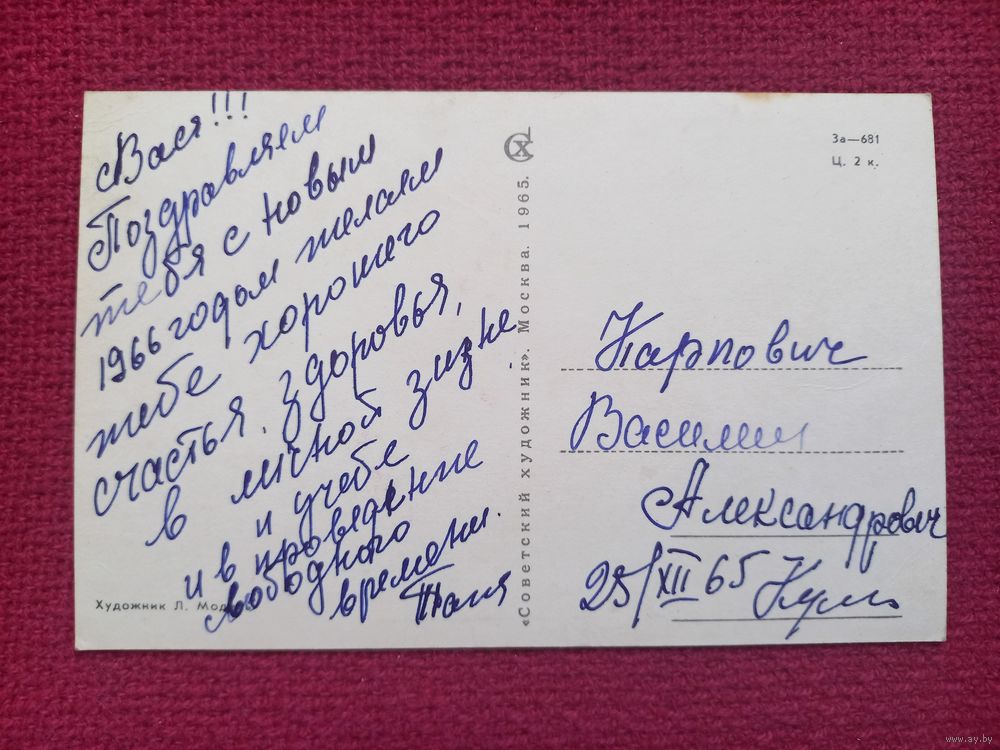 Вася!!!
Поздравляем
тебя с новым
1966 годом желаем
тебе хорошего
счастья. здоровья,
в личной жизне
и учебе
и в проведение
свободного
времени.
Таня
Художник Л.
«Советский художник». Москва. 1965.
За—681
Ц. 2 к.
Карпович
Василий
Александрович
25/XII 65
www.ay.by